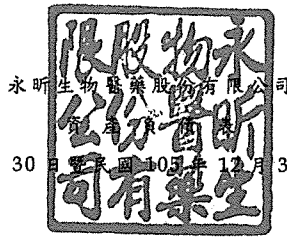 永昕生物醫藥股份有限公司
資產負債表
30 日暨民國 105 年 12 月 3
永昕生
物醫藥
股份有
限公司